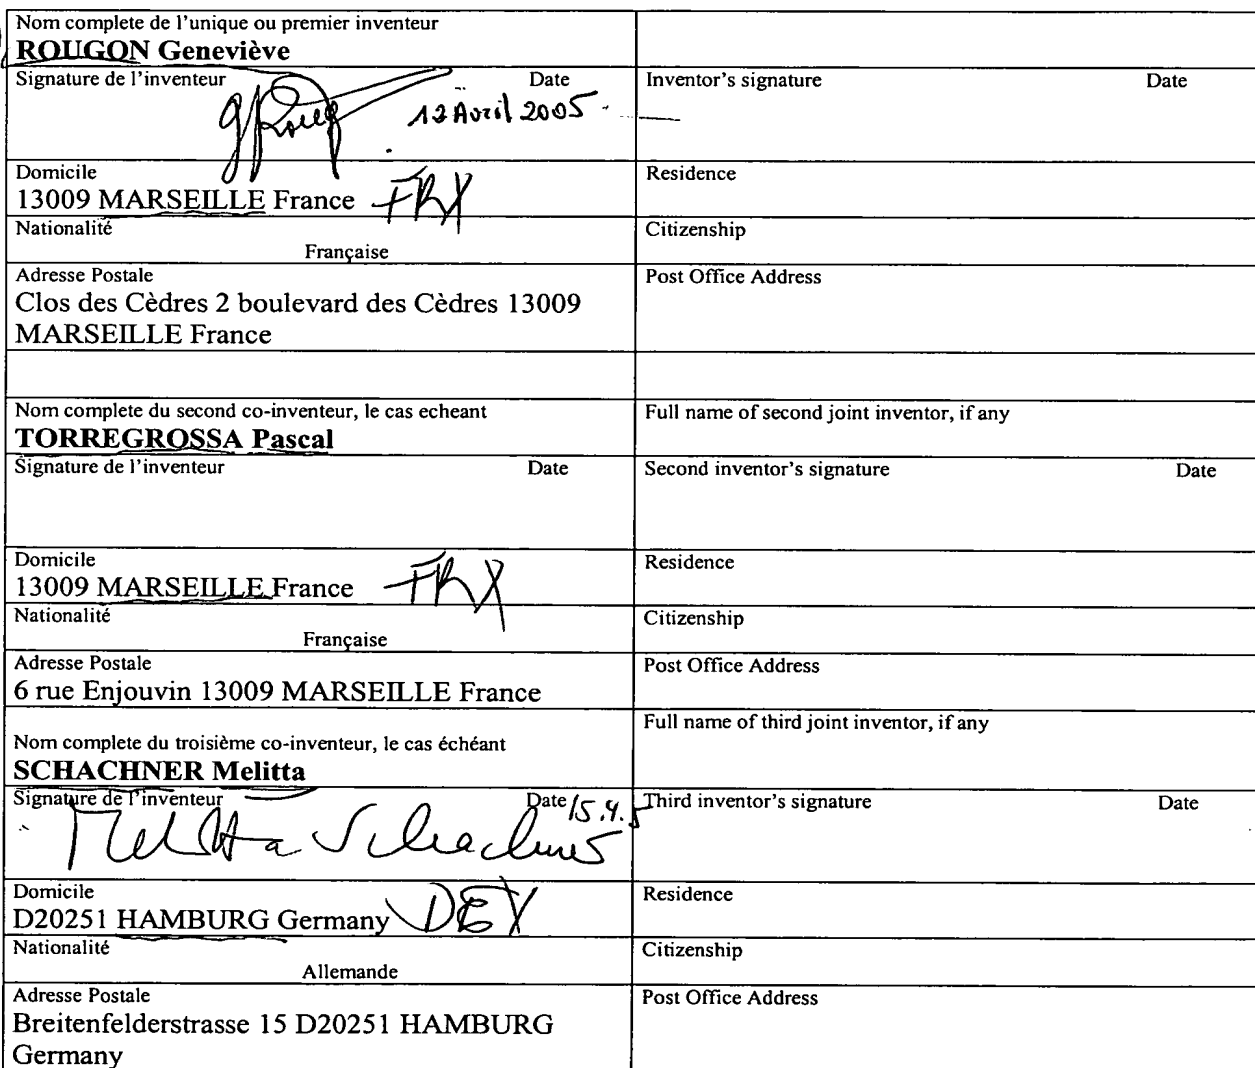 Nom complete de l'unique ou premier inventeur
ROUGON Geneviève
Signature de l'inventeur Date
Inventor's signature Date
12 Avril 2005
Domicile
13009 MARSEILLE France FRX
Residence
Nationalité
Française
Citizenship
Adresse Postale
Clos des Cèdres 2 boulevard des Cèdres 13009
MARSEILLE France
Post Office Address
Nom complete du second co-inventeur, le cas echeant
TORREGROSSA Pascal
Full name of second joint inventor, if any
Signature de l'inventeur Date
Second inventor's signature Date
Domicile
13009 MARSEILLE France FRX
Residence
Nationalité
Française
Citizenship
Adresse Postale
6 rue Enjouvin 13009 MARSEILLE France
Post Office Address
Nom complete du troisième co-inventeur, le cas échéant
SCHACHNER Melitta
Full name of third joint inventor, if any
Signature de l'inventeur Date 15.4.5
Melitta Schachner
Third inventor's signature Date
Domicile
D20251 HAMBURG Germany DEX
Residence
Nationalité
Allemande
Citizenship
Adresse Postale
Breitenfelderstrasse 15 D20251 HAMBURG
Germany
Post Office Address